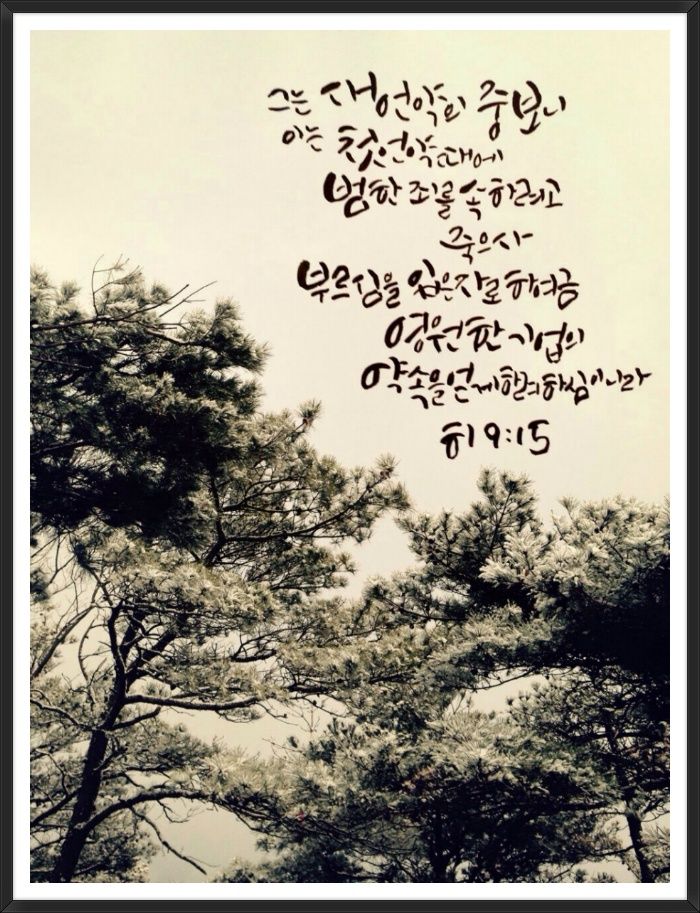 그는 새 언약의 중보니
이는 첫 언약 때에
범한 죄를 속하려고
죽으사
부르심을 입은 자로 하여금
영원한 기업의
약속을 얻게 하려 하심이니라
히 9:15